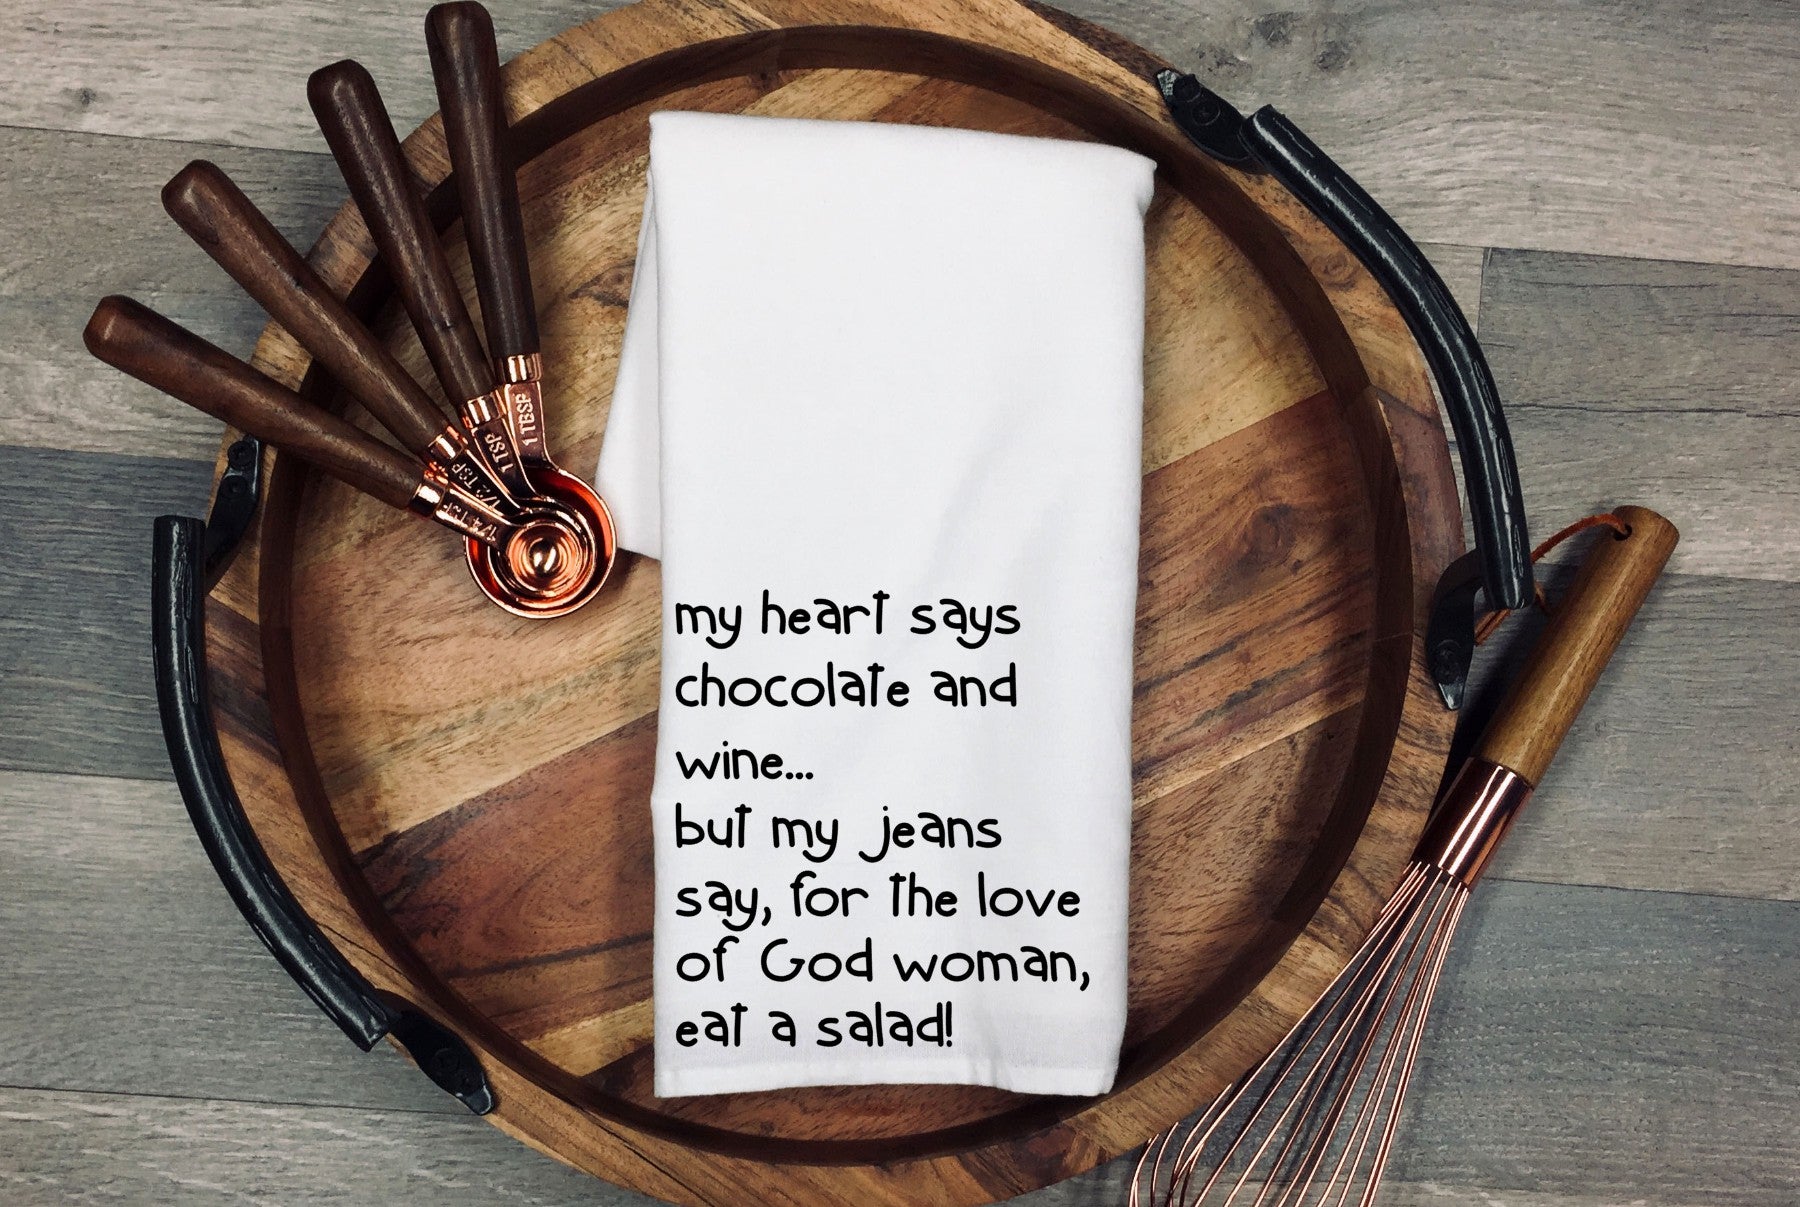 1 TBSP
1 TSP
1/2 TSP
1/4 TSP
my heart says
chocolate and
wine...
but my jeans
say, for the love
of God woman,
eat a salad!